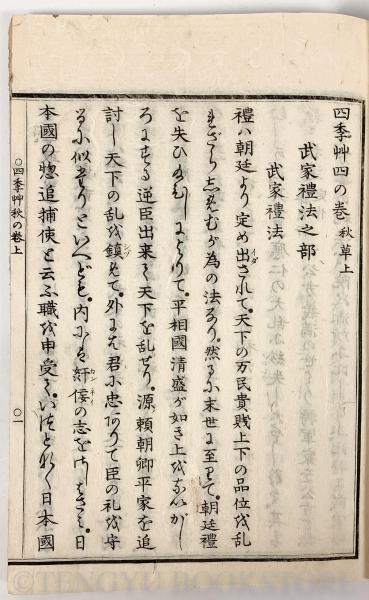 四季艸四の巻 秋草上
武家禮法之部
武家禮法
禮ハ朝廷より定め出されて。天下の万民貴賤上下の品位を乱
れざらしめむが為の法なり。然るに末世に至りて。朝廷禮
を失ひ給ひしによりて。平相國清盛が如き上をないがし
ろにする逆臣出来て天下を乱せり。源頼朝卿平家を追
討し天下の乱を鎮めて。外にハ君に忠ありて臣の礼を守
るに似たりといへども。内にハ奸佞の志をさしはさみ。日
本國の惣追捕使と云ふ職を申受て。いつとなく日本國
イダ
シヅ
カンネイ
〇四季艸秋の巻上
〇一
©TENGYU BOOKSTORE